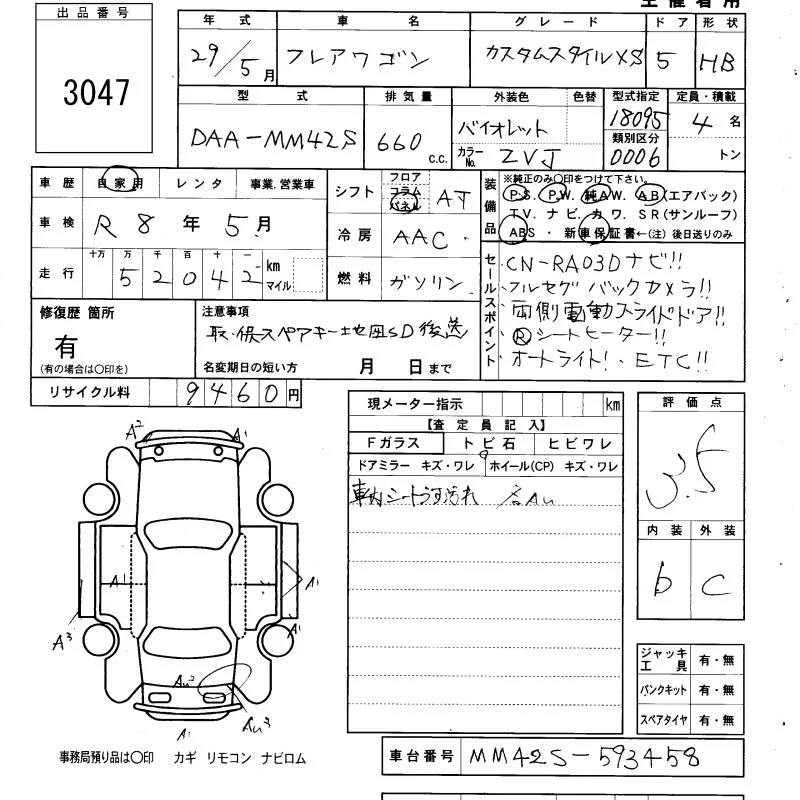 主催者用
出品番号
3047
年式 車名 グレード ドア 形状
29/5月 フレアワゴン カスタムスタイルXS 5 HB
型式 排気量 外装色 色替 型式指定 定員・積載
DAA-MM42S 660 c.c. バイオレット 18095 4名
カラーNo. ZVJ 類別区分 0006 トン
車歴 自家用 レンタ 事業.営業車
車検 R8年5月
走行 十万 万 千 百 十 一 km マイル
52042
シフト フロア コラム パネル AT
冷房 AAC
燃料 ガソリン
装備品 ※純正のみ〇印をつけて下さい。
P.S. P.W. 純AW. AB(エアバック)
TV. ナビ. カワ. SR(サンルーフ)
ABS・新車保証書←(注)後日送りのみ
セールスポイント
CN-RA03Dナビ!!
フルセグ バックカメラ!!
両側電動スライドドア!!
Ⓡシートヒーター!!
オートライト!、ETC!!
修復歴 箇所
有
(有の場合は〇印を)
注意事項
取・保スペアキー地図SD後送
名変期日の短い方 月 日まで
リサイクル料 9460円
現メーター指示 km
【査定員記入】
Fガラス トビ石 ヒビワレ
ドアミラー キズ・ワレ ホイール(CP) キズ・ワレ
車内シートうす汚れ 各AU
評価点
3.5
内装 外装
b C
ジャッキ工具 有・無
パンクキット 有・無
スペアタイヤ 有・無
A2 A1
A1 A1
A3 A1
AU2
A1 AU3
事務局預り品は〇印 カギ リモコン ナビロム
車台番号 MM42S-593458